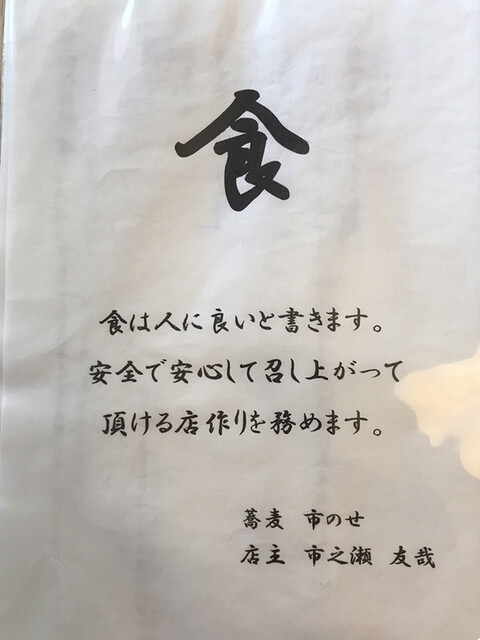 食
食は人に良いと書きます。
安全で安心して召し上がって
頂ける店作りを務めます。
蕎麦 市のせ
店主 市之瀬 友哉